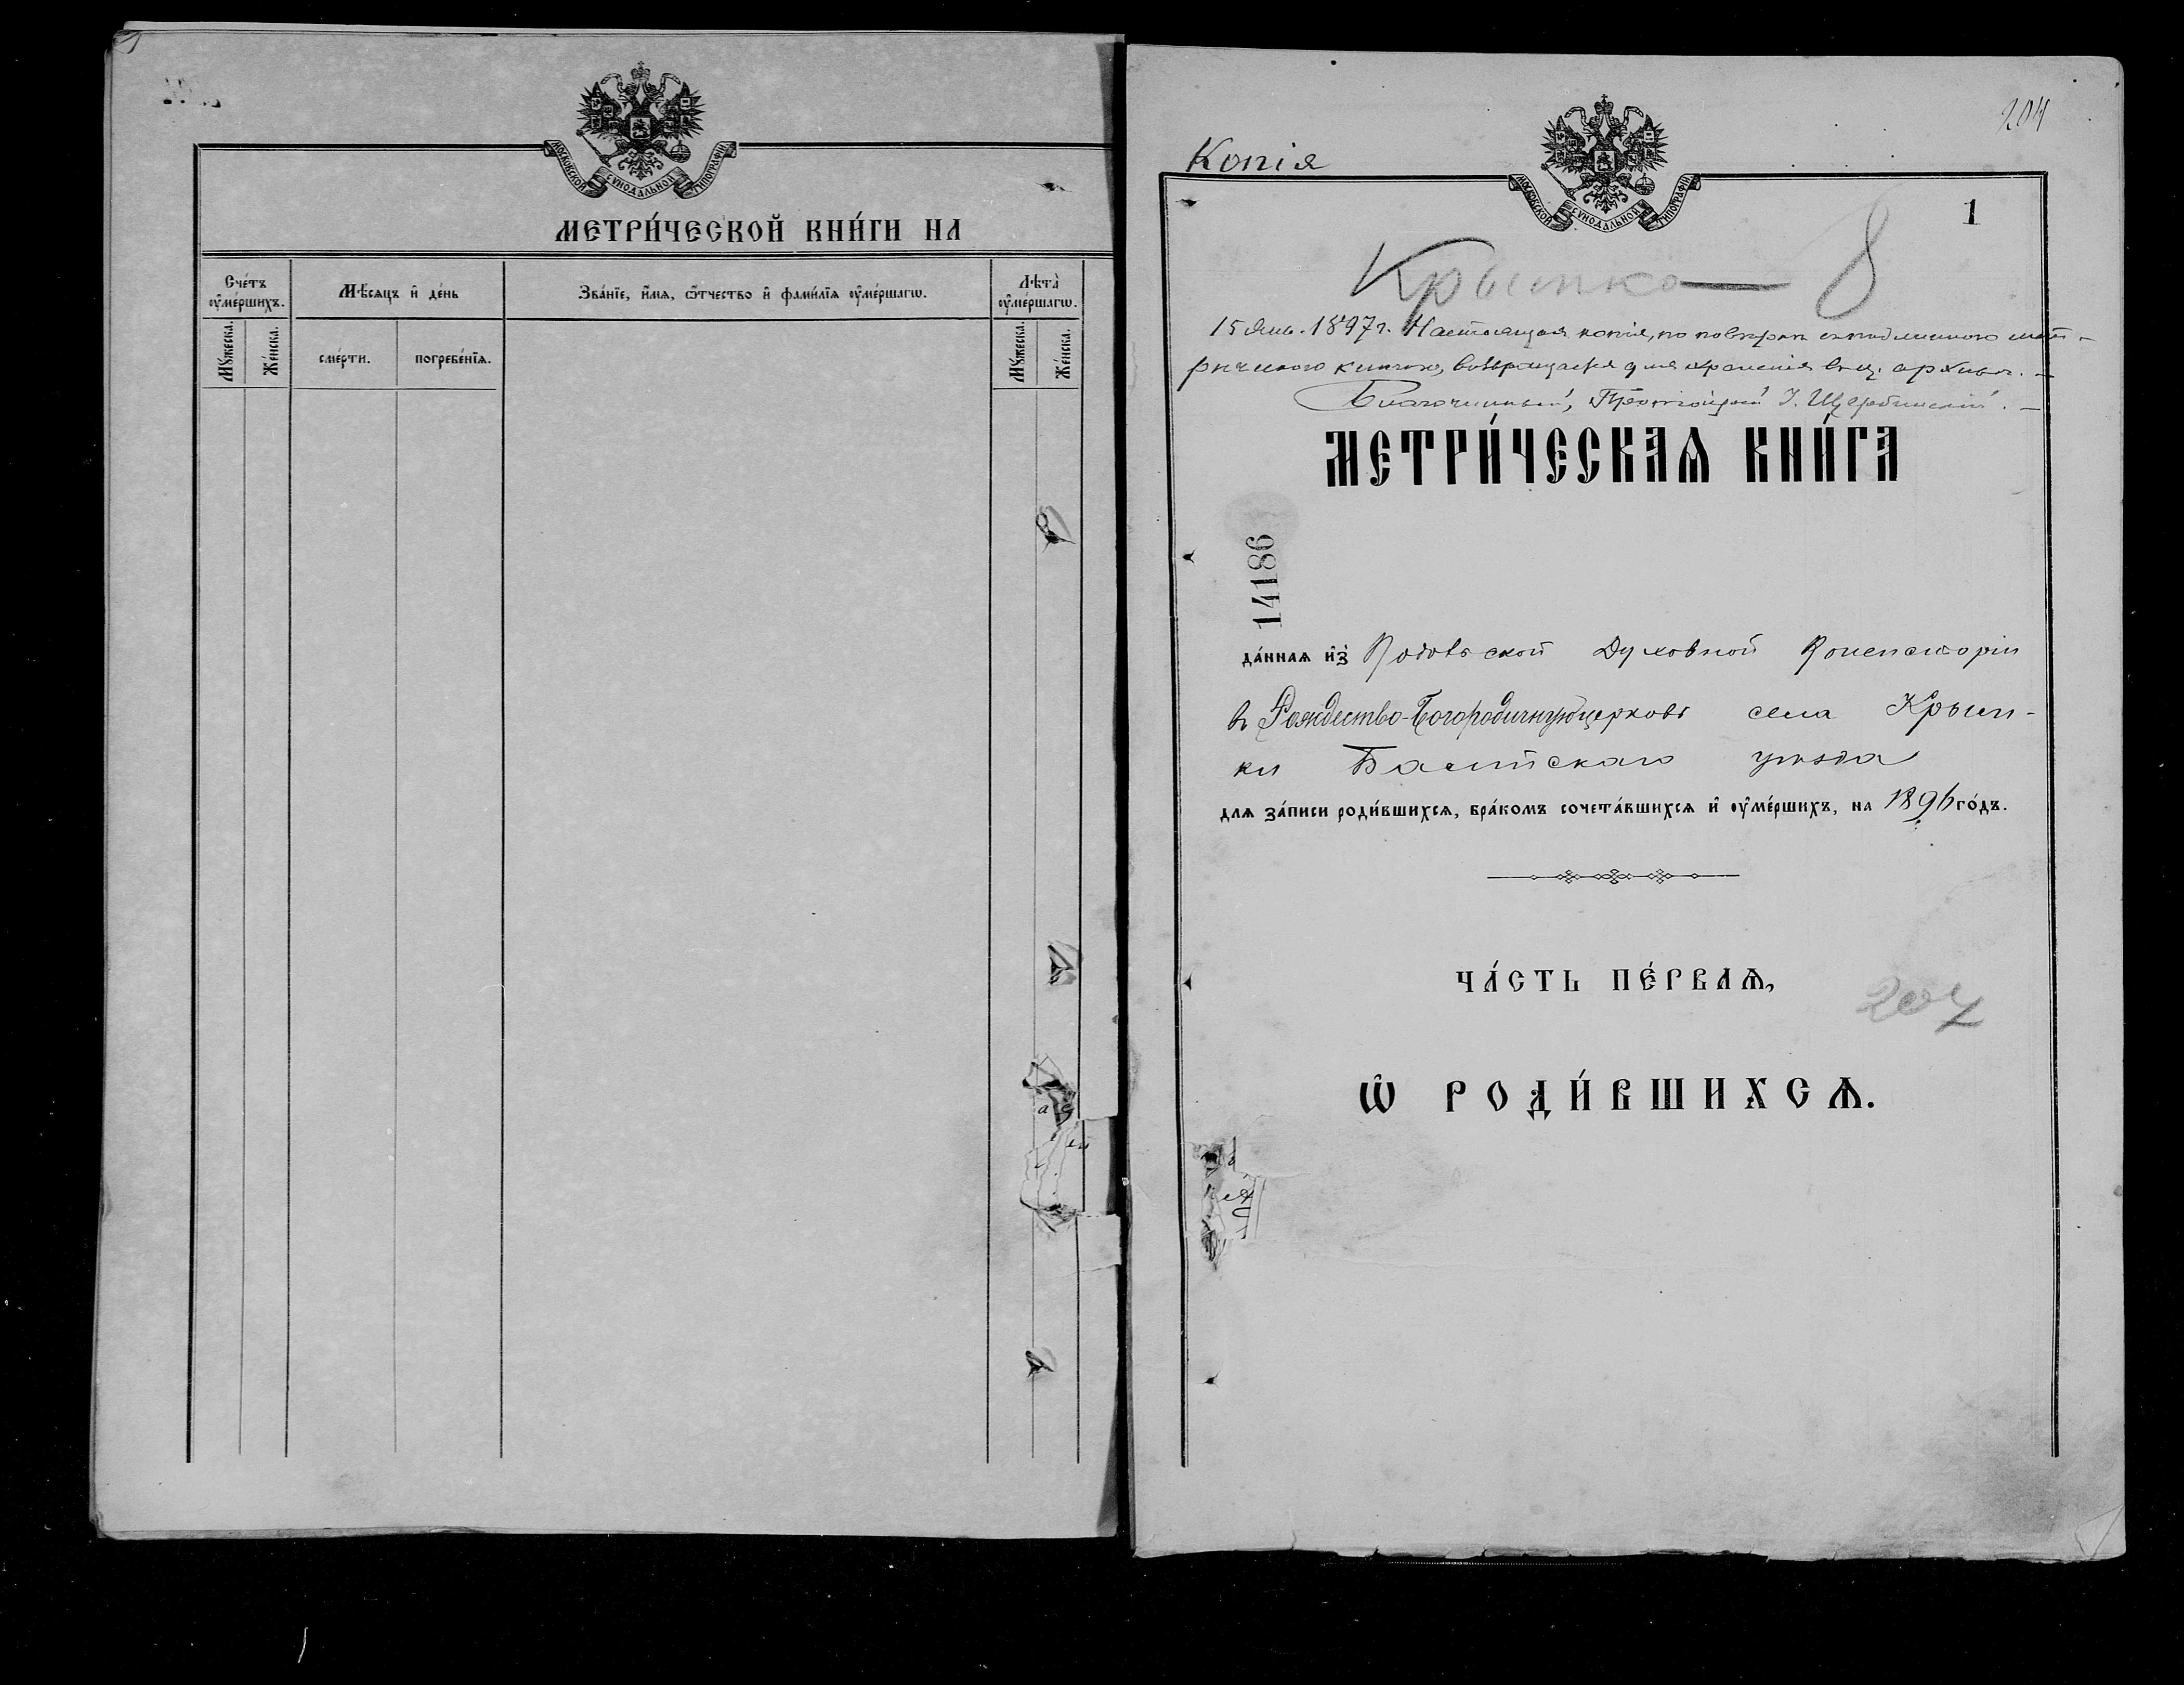 МОСКОВСКОЙ СѴНОДАЛЬНОЙ ТИПОГРАФІИ
МЕТРИ́ЧЕСКОЙ КНИ́ГИ НА
Сче́тъ оумéршихъ.
Мѣ́сяцъ и҆ де́нь
Зва́нїе, и҆́мѧ, ѻ҆́тчество и҆ фами́лїѧ оу҆ме́ршагѡ.
Лѣта̀ оу҆ме́ршагѡ.
Мꙋ́жеска.
Же́нска.
сме́рти.
погребе́нїѧ.
Мꙋ́жеска.
Же́нска.
204
Копія
МОСКОВСКОЙ СѴНОДАЛЬНОЙ ТИПОГРАФІИ
1
Крымка — 8
15 Янв. 1897 г. Настоящая копія, по повѣркѣ съ подлинною мет-
рическою книгою, возвращается для храненія въ ц. архивѣ. —
Благочинный, Протоіерей І. Щербинскій. —
МЕТРИ́ЧЕСКАѦ КНИ́ГА
14186
да́ннаѧ и҆з̾ Подольской Духовной Консисторіи
въ Рождество-Богородичную церковь села Крым-
ки Балтскаго уѣзда
длѧ за́писи роди́вшихсѧ, бра́комъ сочета́вшихсѧ и҆ оу҆ме́ршихъ, на 1896 го́дъ.
ЧА́СТЬ ПЕ́РВАѦ,
207
Ѡ҆ РОДИ́ВШИХСѦ.